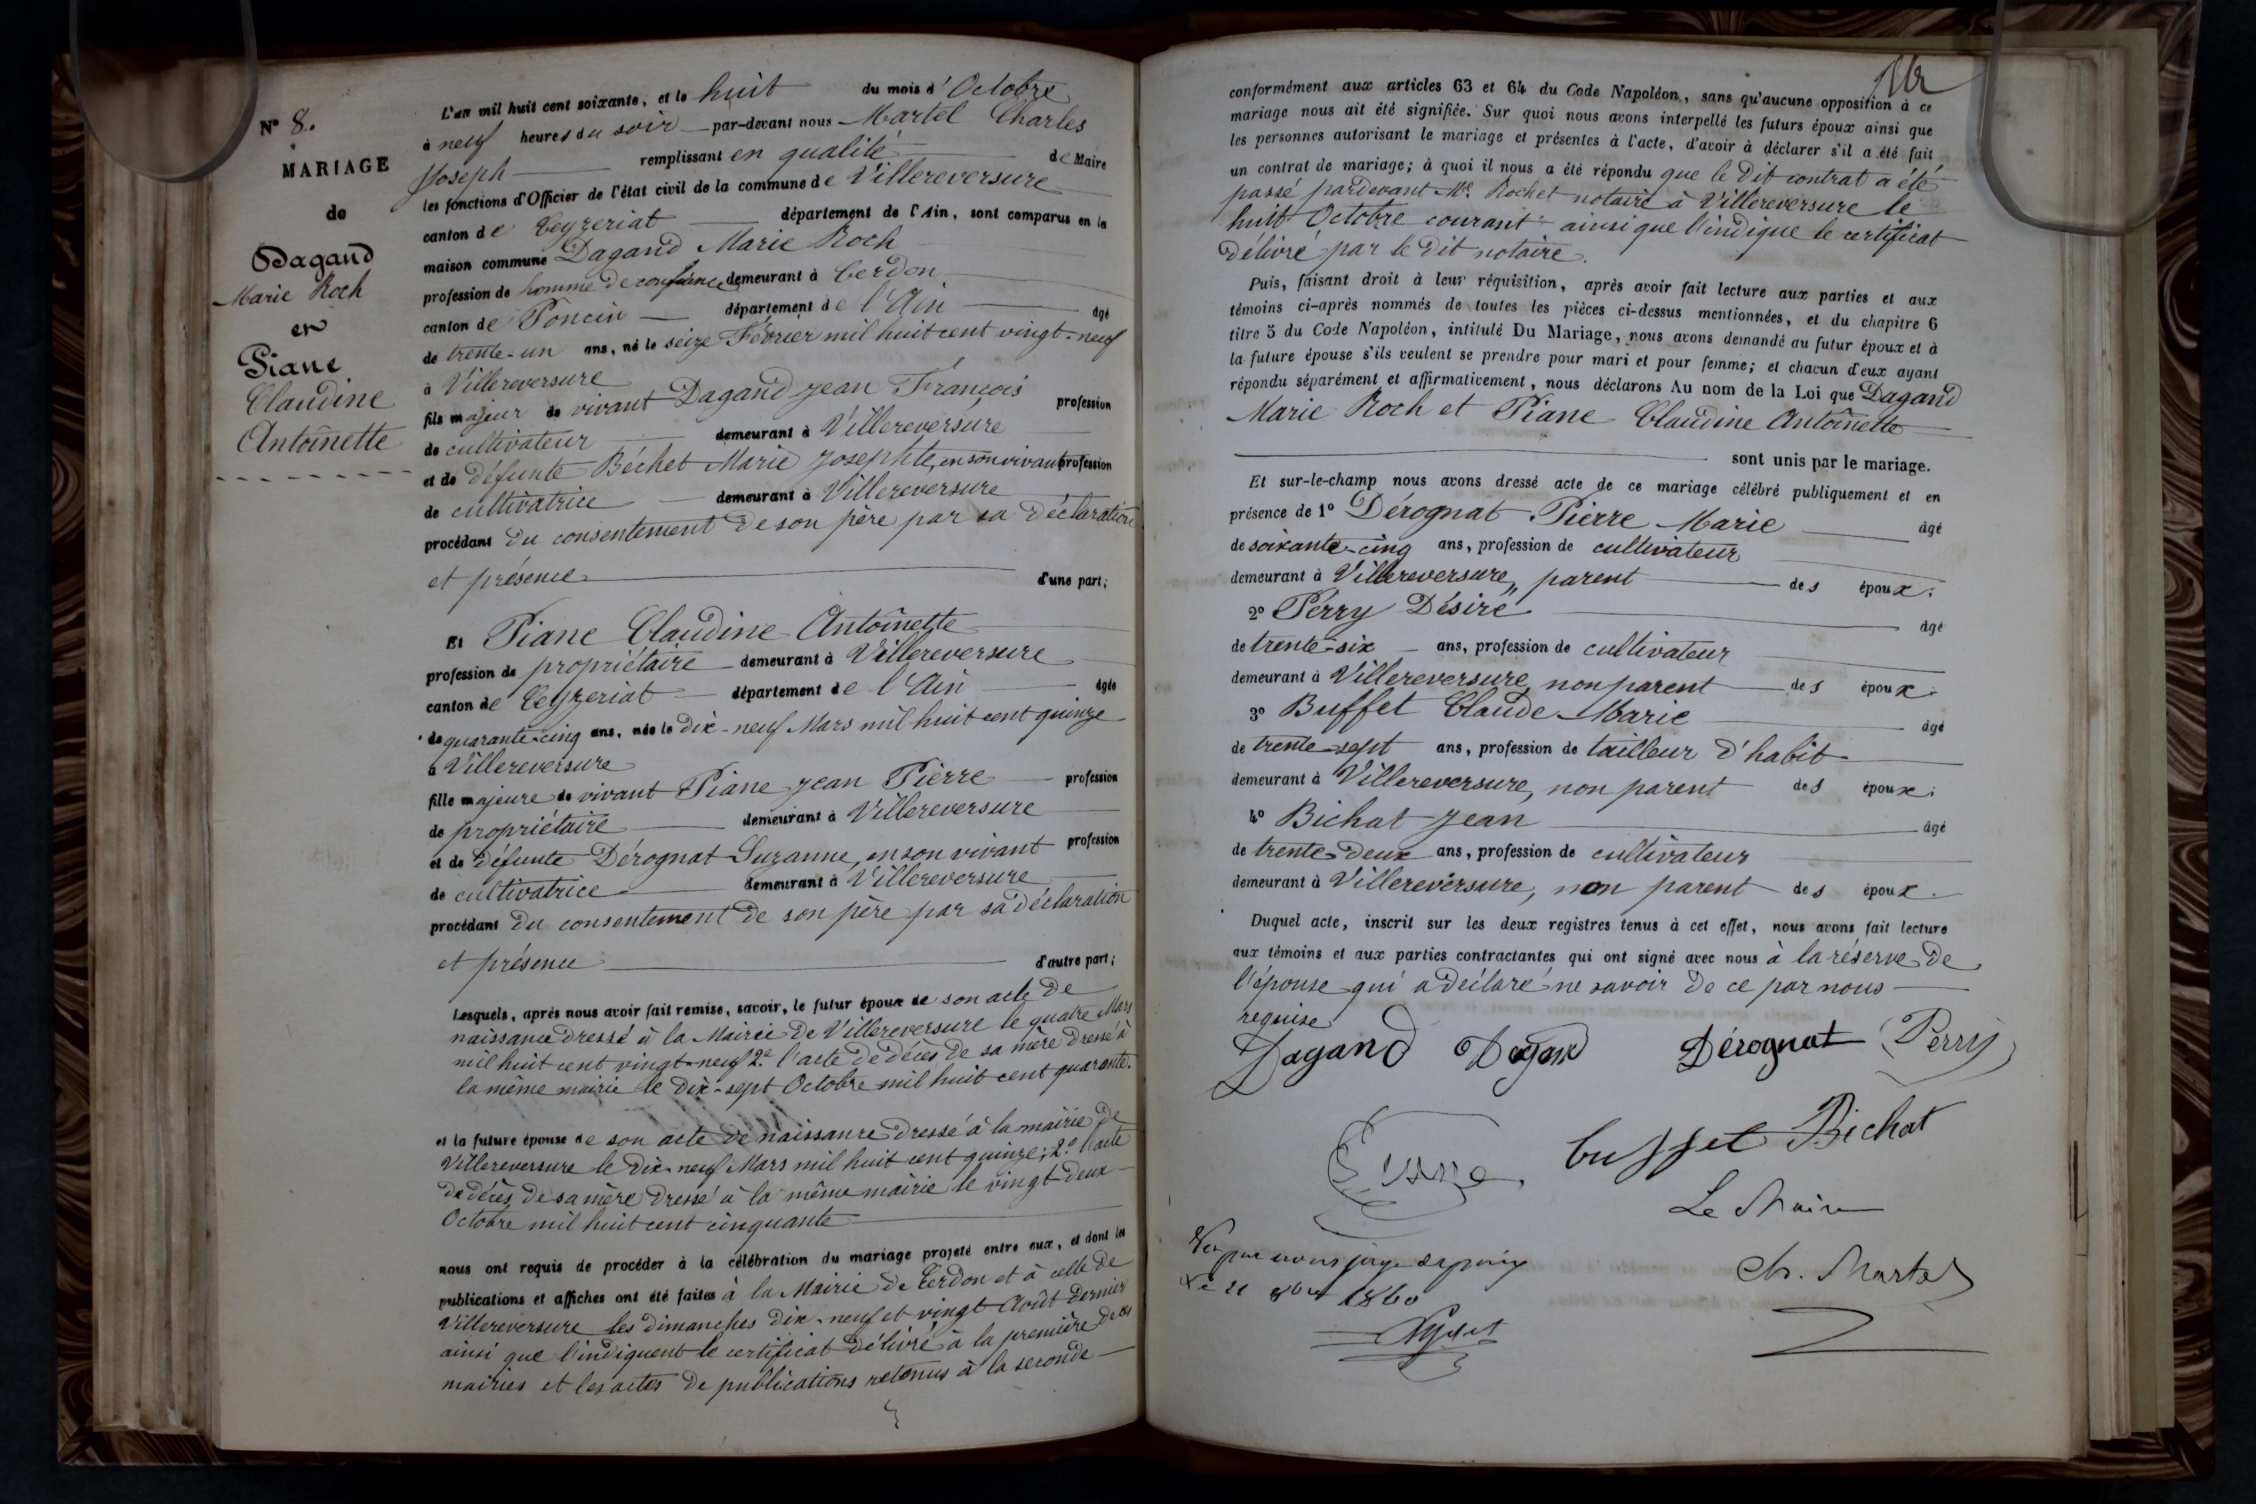 N° 8.
MARIAGE
de
Dagand
Marie Roch
et
Piane
Claudine
Antoînette
L'an mil huit cent soixante, et le huit du mois d'Octobre
à neuf heures du soir par-devant nous Martel Charles
Joseph remplissant en qualité de Maire
les fonctions d'Officier de l'état civil de la commune de Villereversure
canton de Ceyzeriat département de l'Ain, sont comparus en la
maison commune Dagand Marie Roch
profession de homme de confiance demeurant à Cerdon
canton de Poncin département de l'Ain âgé
de trente-un ans, né le seize Février mil huit cent vingt-neuf
à Villereversure
fils majeur de vivant Dagand Jean François profession
de cultivateur demeurant à Villereversure
et de défunte Béchet Marie Josephte, en son vivant profession
de cultivatrice demeurant à Villereversure
procédant du consentement de son père par sa déclaration
et présence d'une part;
Et Piane Claudine Antoînette
profession de propriétaire demeurant à Villereversure
canton de Ceyzeriat département de l'Ain âgée
de quarante-cinq ans, née le dix-neuf Mars mil huit cent quinze
à Villereversure
fille majeure de vivant Piane Jean Pierre profession
de propriétaire demeurant à Villereversure
et de défunte Dérognat Suzanne, en son vivant profession
de cultivatrice demeurant à Villereversure
procédant du consentement de son père par sa déclaration
et présence d'autre part;
Lesquels, après nous avoir fait remise, savoir, le futur époux de son acte de
naissance dressé à la Mairie de Villereversure le quatre Mars
mil huit cent vingt-neuf 2.° l'acte de décès de sa mère dressé à
la même mairie le dix-sept Octobre mil huit cent quarante.
et la future épouse de son acte de naissance dressé à la mairie de
Villereversure le dix-neuf Mars mil huit cent quinze; 2.° l'acte
de décès de sa mère dressé à la même mairie le vingt-deux
Octobre mil huit cent cinquante
nous ont requis de procéder à la célébration du mariage projeté entre eux, et dont les
publications et affiches ont été faites à la Mairie de Cerdon et à celle de
Villereversure les dimanches dix-neuf et vingt Août dernier
ainsi que l'indiquent le certificat délivré à la première de ces
mairies et les actes de publications retenus à la seconde
conformément aux articles 63 et 64 du Code Napoléon, sans qu'aucune opposition à ce
mariage nous ait été signifiée. Sur quoi nous avons interpellé les futurs époux ainsi que
les personnes autorisant le mariage et présentes à l'acte, d'avoir à déclarer s'il a été fait
un contrat de mariage; à quoi il nous a été répondu que le dit contrat a été
passé pardevant M.e Rochet notaire à Villereversure le
huit Octobre courant ainsi que l'indique le certificat
délivré par le dit notaire.
Puis, faisant droit à leur réquisition, après avoir fait lecture aux parties et aux
témoins ci-après nommés de toutes les pièces ci-dessus mentionnées, et du chapitre 6
titre 5 du Code Napoléon, intitulé Du Mariage, nous avons demandé au futur époux et à
la future épouse s'ils veulent se prendre pour mari et pour femme; et chacun d'eux ayant
répondu séparément et affirmativement, nous déclarons Au nom de la Loi que Dagand
Marie Roch et Piane Claudine Antoînette
sont unis par le mariage.
Et sur-le-champ nous avons dressé acte de ce mariage célébré publiquement et en
présence de 1° Dérognat Pierre Marie âgé
de soixante-cinq ans, profession de cultivateur
demeurant à Villereversure, parent des époux;
2° Perry Désiré âgé
de trente-six ans, profession de cultivateur
demeurant à Villereversure, non parent des époux;
3° Buffet Claude Marie âgé
de trente-sept ans, profession de tailleur d'habit
demeurant à Villereversure, non parent des époux;
4° Bichat Jean âgé
de trente-deux ans, profession de cultivateur
demeurant à Villereversure, non parent des époux.
Duquel acte, inscrit sur les deux registres tenus à cet effet, nous avons fait lecture
aux témoins et aux parties contractantes qui ont signé avec nous à la réserve de
l'épouse qui a déclaré ne savoir de ce par nous
requise
Dagand Dagand Dérognat Perry
buffet Bichat
Le Maire
Vu par nous juge de paix
Le 21 8bre 1860
Ch. Martel